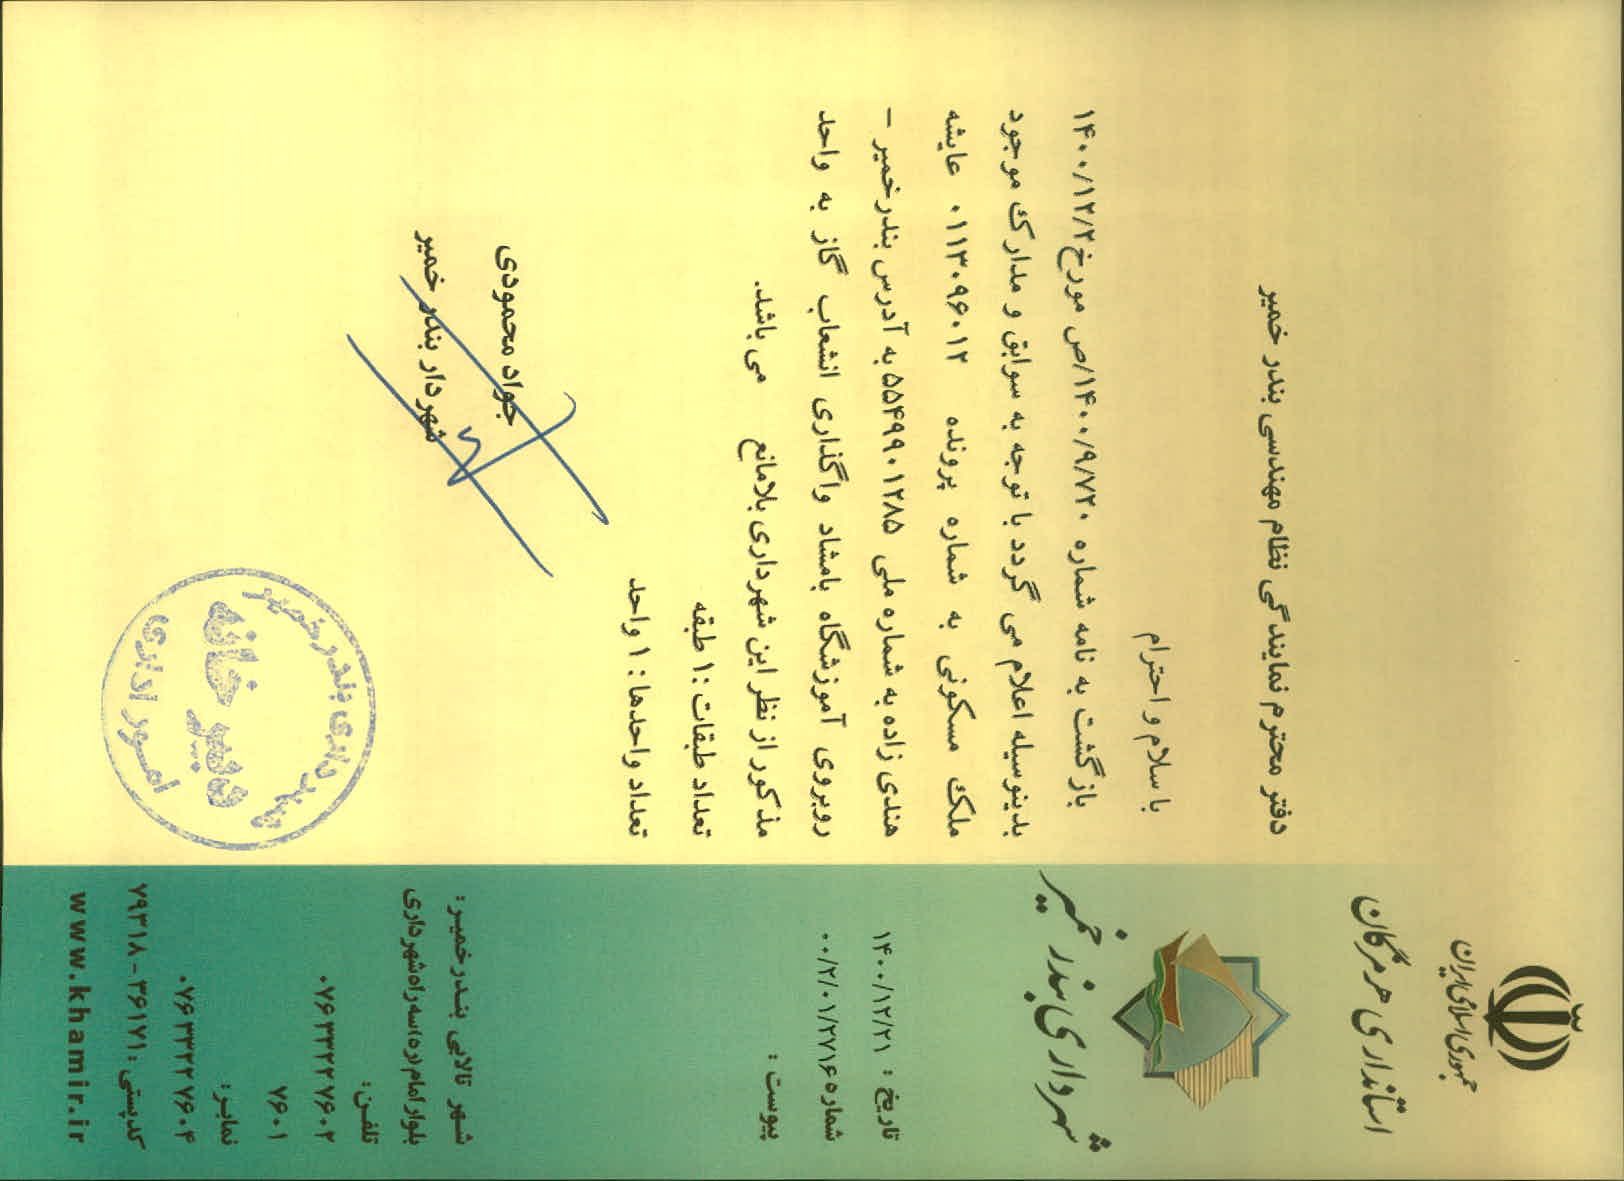 جمهوری اسلامی ایران
استانداری هرمزگان
شهرداری بندر خمیر
تاریخ : ۱۴۰۰/۱۲/۲۱
شماره ۰۰/۲/۰۱/۲۷۱۶
پیوست :
شهر تالابی بندرخمیر:
بلوار امام(ره)سه راه شهرداری
تلفن:
۰۷۶۳۳۲۲۷۶۰۲
۷۶۰۱
نمابر:
۰۷۶۳۳۲۲۷۶۰۴
کدپستی: ۳۶۱۷۱ - ۷۹۳۱۸
www.khamir.ir
دفتر محترم نمایندگی نظام مهندسی بندر خمیر
با سلام و احترام
بازگشت به نامه شماره ۱۴۰۰/۹/۷۲۰/ص مورخ ۱۴۰۰/۱۲/۲
بدینوسیله اعلام می گردد با توجه به سوابق و مدارک موجود
ملک مسکونی به شماره پرونده ۰۱۱۳۰۹۶۰۱۲ عایشه
هندی زاده به شماره ملی ۵۵۴۹۹۰۱۲۸۵ به آدرس بندرخمیر –
روبروی آموزشگاه بامشاد واگذاری انشعاب گاز به واحد
مذکور از نظر این شهرداری بلامانع می باشد.
تعداد طبقات :۱ طبقه
تعداد واحدها : ۱ واحد
جواد محمودی
شهردار بندر خمیر
شهرداری بندرخمیر
دبیرخانه
امور اداری